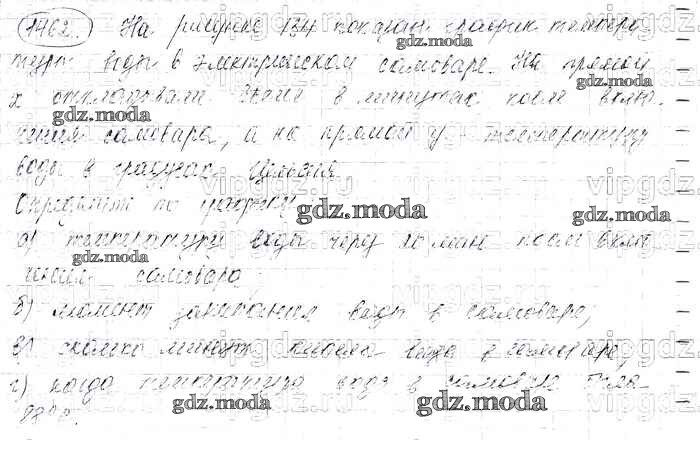 1462. На рисунке 134 показан график темпера-
туры воды в электрическом самоваре. На прямой
x откладывали время в минутах после вклю-
чения самовара, а на прямой y - температуру
воды в градусах Цельсия.
Определите по графику:
а) температуру воды через 10 мин после вклю
чения самовара
б) момент закипания воды в самоваре;
в) сколько минут кипела вода в самоваре,
г) когда температура воды в самоваре была
gdz.moda
vipgdz.ru